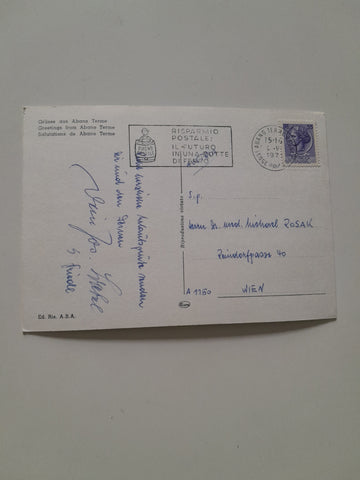 Grüsse aus Abano Terme
Greetings from Abano Terme
Salutations de Abano Terme
RISPARMIO
POSTALE:
IL FUTURO
IN UNA BOTTE
DI FERRO
ABANO TERME
15-16
1971
Herzlichste Urlaubsgrüße senden
Dir und den Deinen
Dein
Jos.
Friedl
S.g.
Herrn Dr. med. Michael ROSAK
Reindorfgasse 40
A 1150 WIEN
Riproduzione vietata
Ed. Ris. A.B.A.